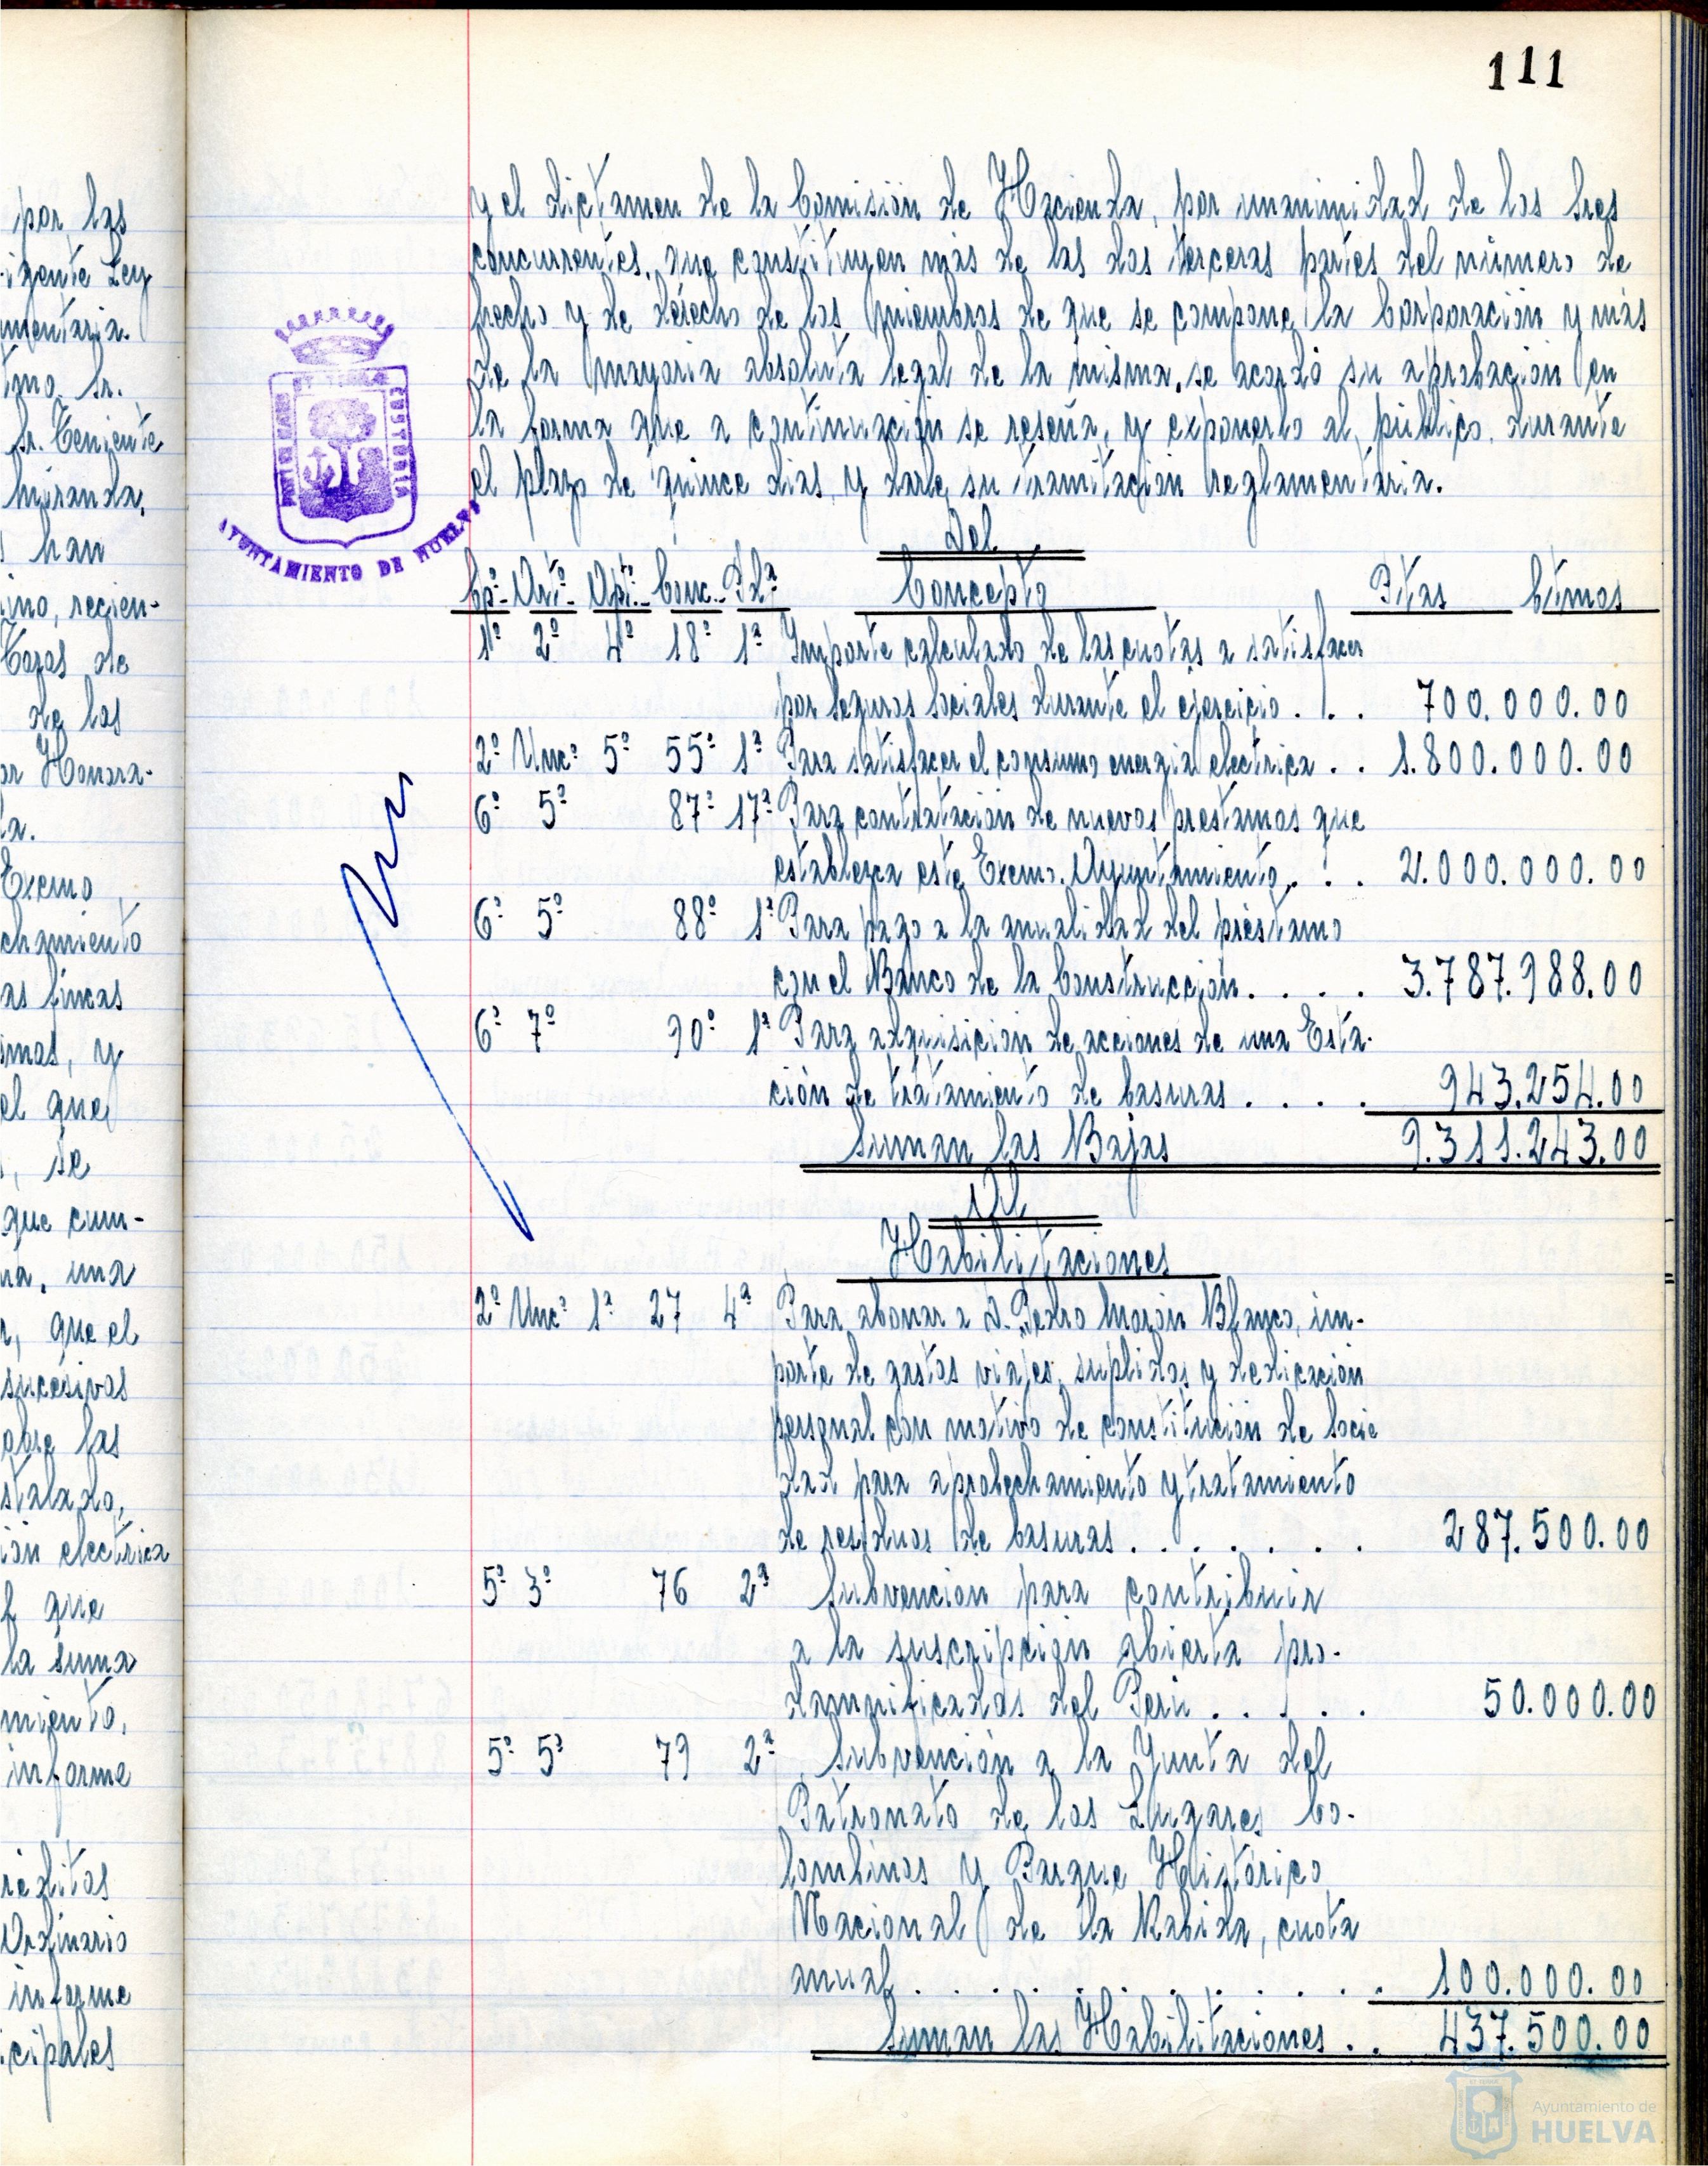 111
por las
igente Ley
mentaria.
tmo. Sr.
Sr. Teniente
Miranda,
han
ino, recien-
Tozas de
de los
or Honora-
la.
Excmo
chamiento
as fincas
imas, y
el que
, se
que cum-
na, una
r, que el
sucesivos
obre las
stalado,
ión electrica
f que
la suma
miento,
informe
reditos
Ordinario
informe
icipales
y el dictamen de la Comisión de Hacienda, por unanimidad de los Sres
concurrentes, que constituyen más de las dos terceras partes del número de
hecho y de derecho de los miembros de que se compone la Corporación y más
de la mayoria absoluta legal de la misma, se acordó su aprobación en
la forma que a continuación se reseña, y exponerlo al público durante
el plazo de quince dias, y darle su tramitación reglamentaria.
Del
Cpº Artº Aptº Conc. Pdª Concepto Ptas Ctmos
1º 2º 4º 18º 1ª Importe calculado de las cuotas a satisfacer
por Seguros Sociales durante el ejercicio . . . 700.000.00
2º Unc: 5º 55º 1ª Para satisfacer el consumo energia electrica . . 1.800.000.00
6º 5º 87º 17ª Para contratación de nuevos prestamos que
establezca este Excmo. Ayuntamiento . . . 2.000.000.00
6º 5º 88º 1ª Para pago a la anualidad del préstamo
con el Banco de la Construcción . . . . 3.787.988.00
6º 7º 90º 1ª Para adquisición de acciones de una Esta-
ción de tratamiento de basuras . . . . 943.254.00
Suman las Bajas 9.311.243.00
Al
Habilitaciones
2º Unc: 1ª 27 4ª Para abonar a D. Pedro Morón Blanco, im-
porte de gastos viajes, suplidos y dedicación
personal con motivo de constitución de Socie
dad para aprobechamiento y tratamiento
de residuos de basuras . . . . . . . 287.500.00
5º 3º 76 2ª Subvención para contribuir
a la suscripción abierta pro-
damnificados del Perú . . . . . 50.000.00
5º 5º 79 2ª Subvención a la Junta del
Patronato de los Lugares Co-
lombinos y Parque Histórico
Nacional de la Rabida, cuota
anual . . . . . . . . . . . 100.000.00
Suman las Habilitaciones . . 437.500.00
AYUNTAMIENTO DE HUELVA
Ayuntamiento de
HUELVA